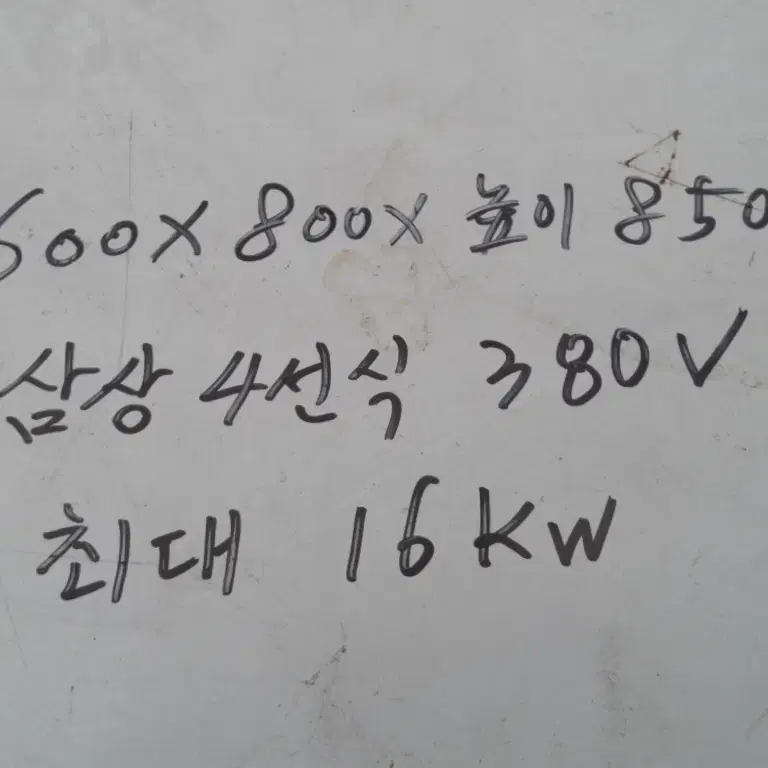 600X 800X 높이 850
삼상 4선식 380V
최대 16KW